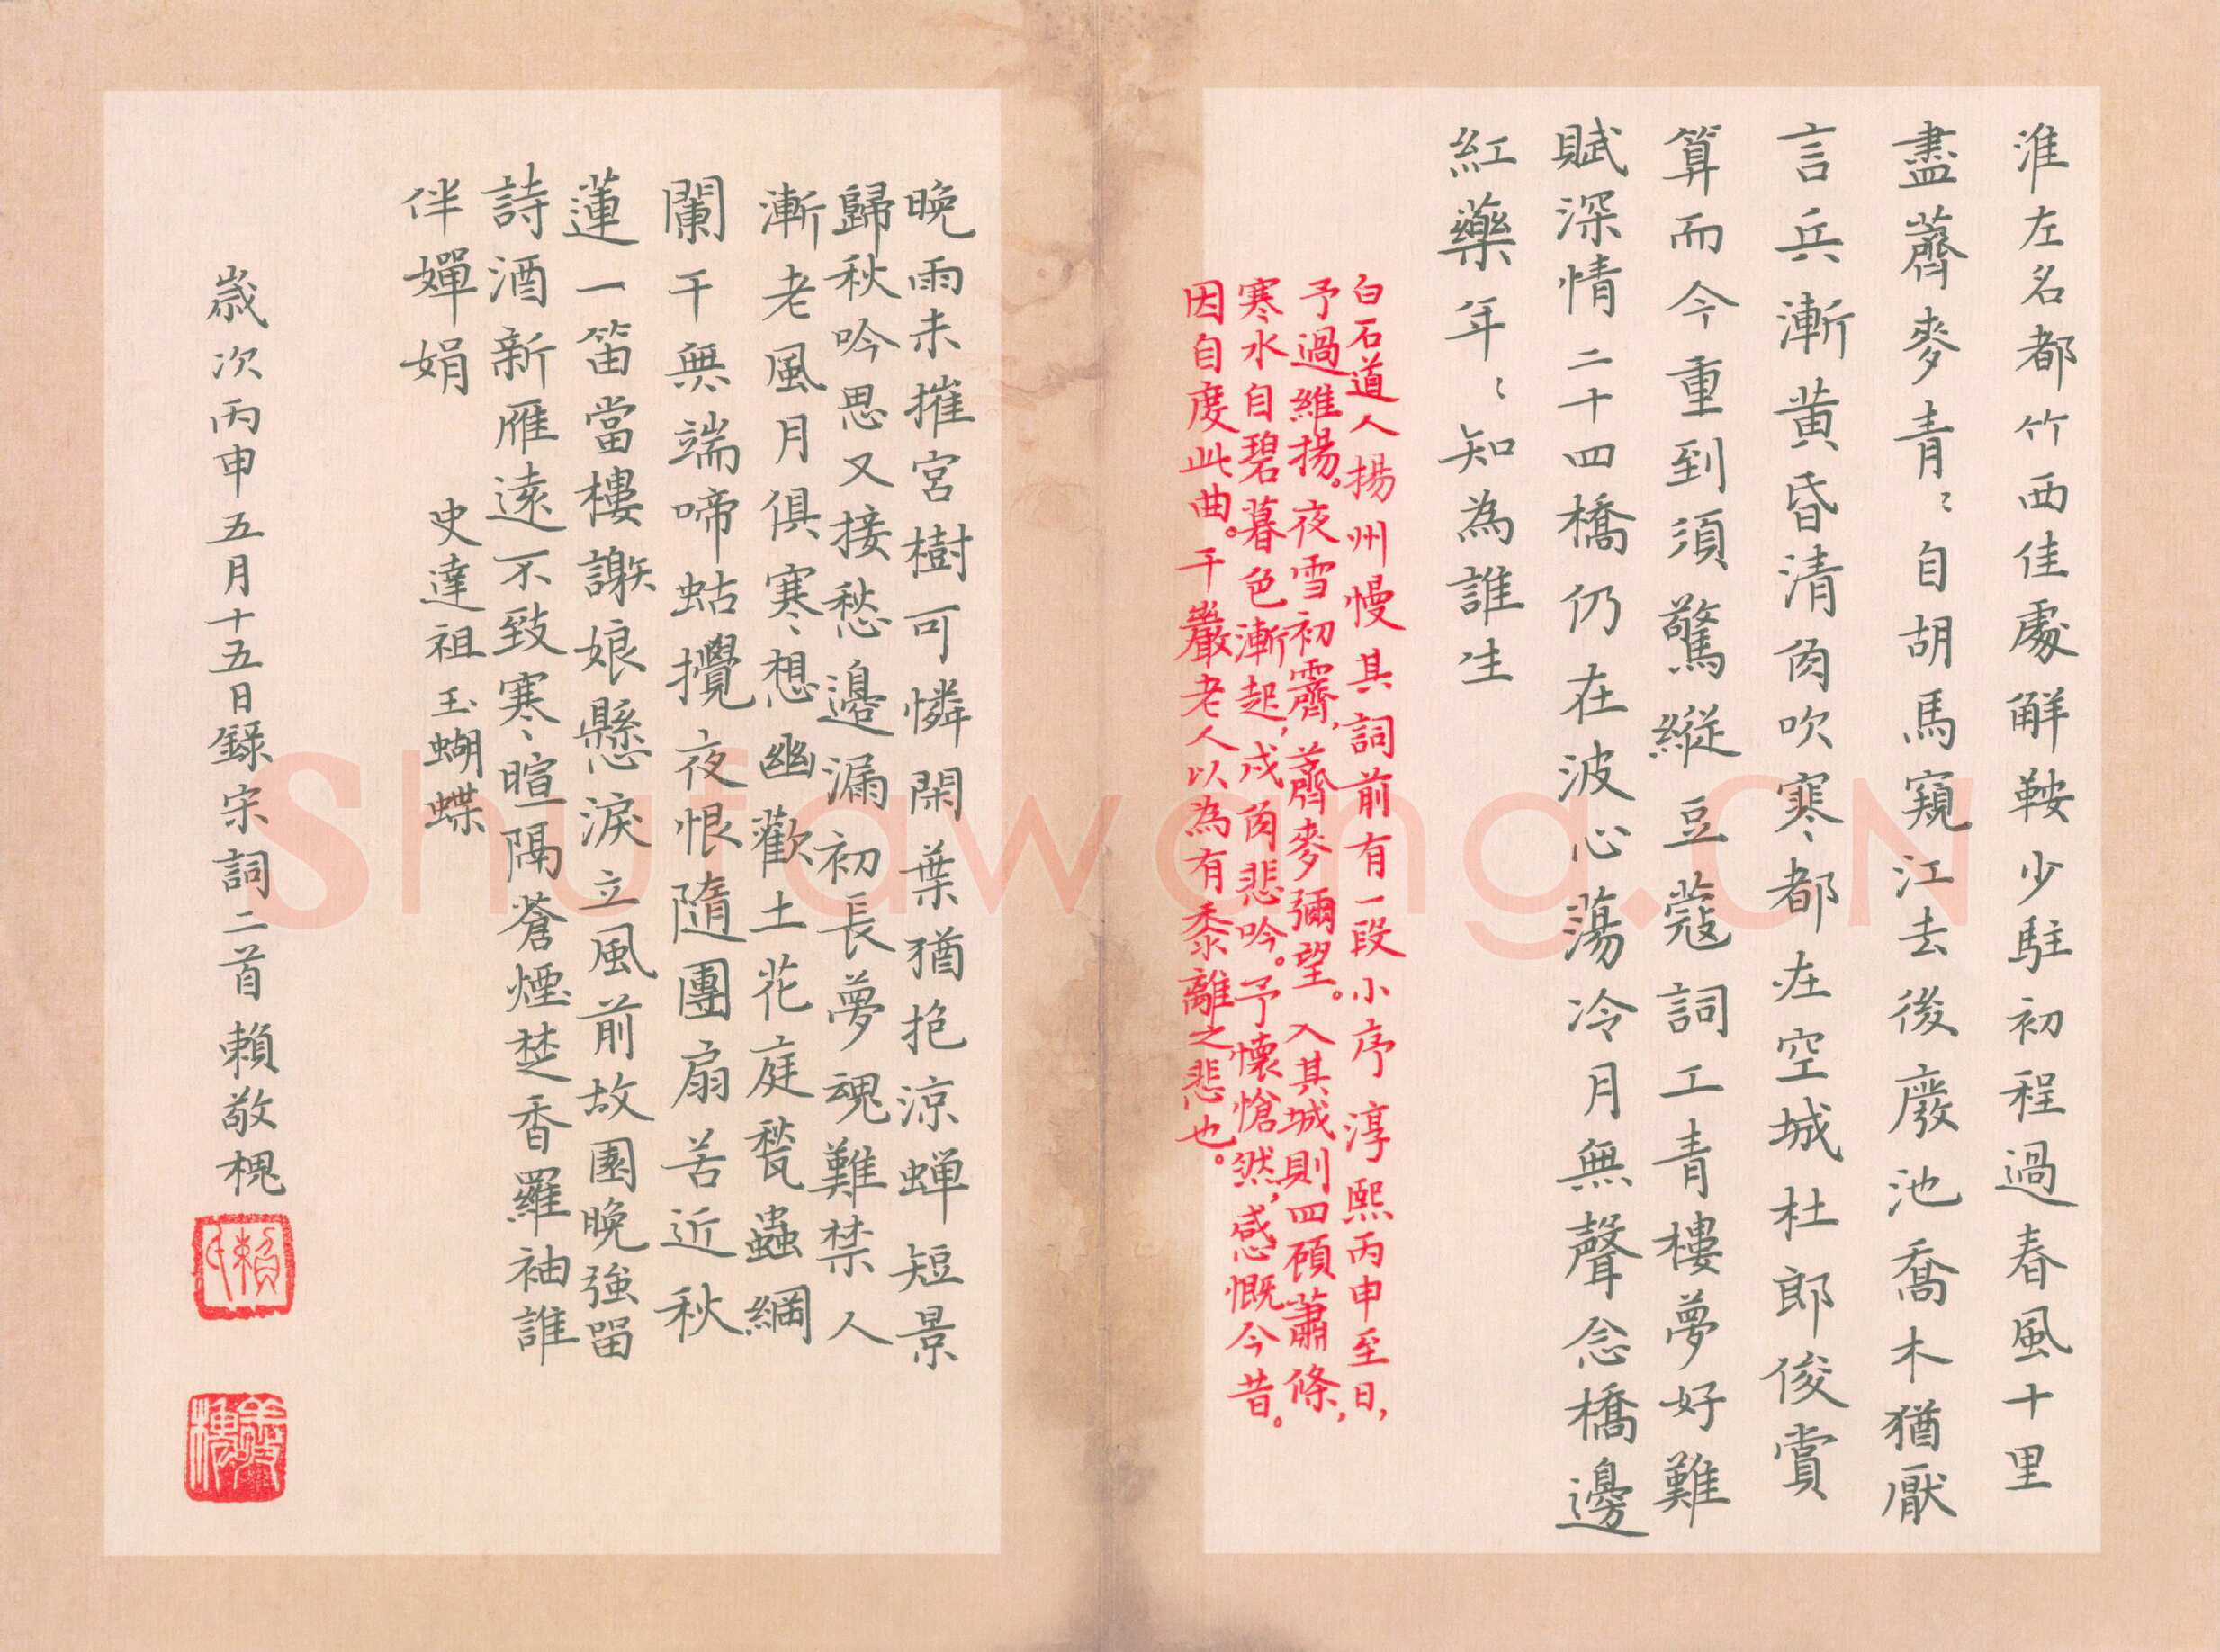 淮左名都竹西佳處解鞍少駐初程過春風十里
盡薺麥青〻自胡馬窺江去後廢池喬木猶厭
言兵漸黄昏清角吹寒都在空城杜郎俊賞
算而今重到須驚縱豆蔻詞工青樓夢好難
賦深情二十四橋仍在波心蕩冷月無聲念橋邊
紅藥年〻知為誰生
白石道人揚州慢其詞前有一段小序淳熙丙申至日,
予過維揚。夜雪初霽,薺麥彌望。入其城則四顧蕭條,
寒水自碧暮色漸起,戍角悲吟。予懷愴然,感慨今昔。
因自度此曲。千巖老人以為有黍離之悲也。
晚雨未摧宮樹可憐閑葉猶抱涼蟬短景
歸秋吟思又接愁邊漏初長夢魂難禁人
漸老風月俱寒想幽歡土花庭甃蟲網
闌干無端啼蛄攪夜恨隨團扇苦近秋
蓮一笛當樓謝娘懸淚立風前故園晚強留
詩酒新雁遠不致寒暄隔蒼煙楚香羅袖誰
伴嬋娟
史達祖玉蝴蝶
歲次丙申五月十五日錄宋詞二首賴敬槐
賴氏
敬槐
Shufawang.CN